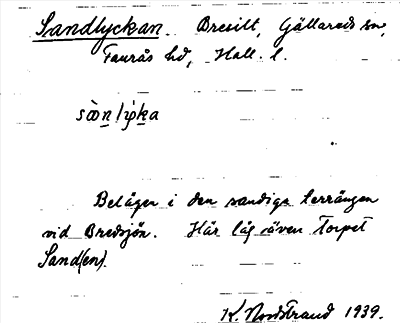 Sandlyckan. Bresilt, Gällareds sn,
Faurås hd, Hall. l.
sànlỳka
Belägen i den sandiga terrängen
vid Bredsjön. Här låg även torpet
Sand(en).
K. Nordstrand 1939.